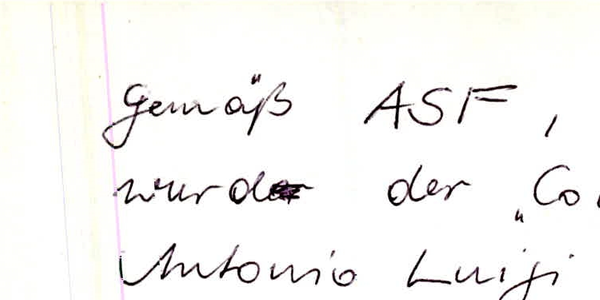 gemäß ASF,
wurde der „Co
Antonio Luigi